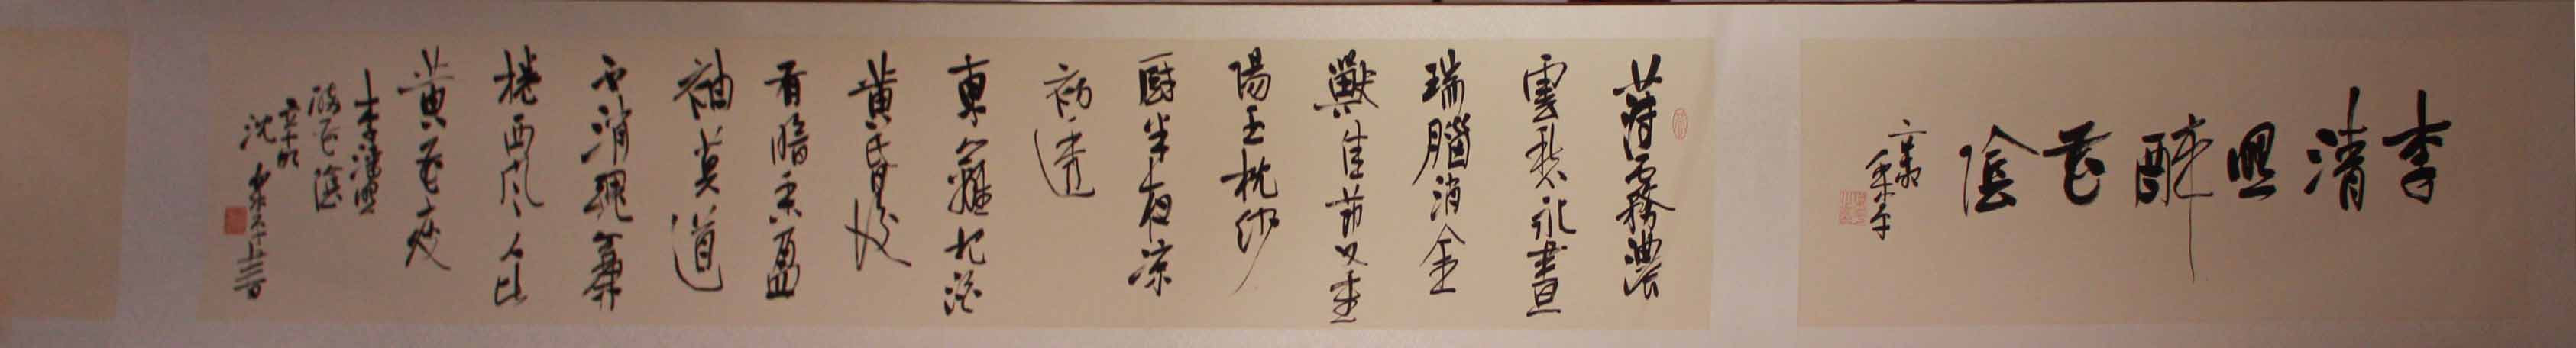 李清照醉花陰
秉午
薄霧濃
雲愁永晝
瑞腦消金
獸佳節又重
陽玉枕紗
廚半夜涼
初透
東籬把酒
黃昏後
有暗香盈
袖莫道
不消魂簾
捲西風人比
黃花瘦
李清照
醉花陰
沈